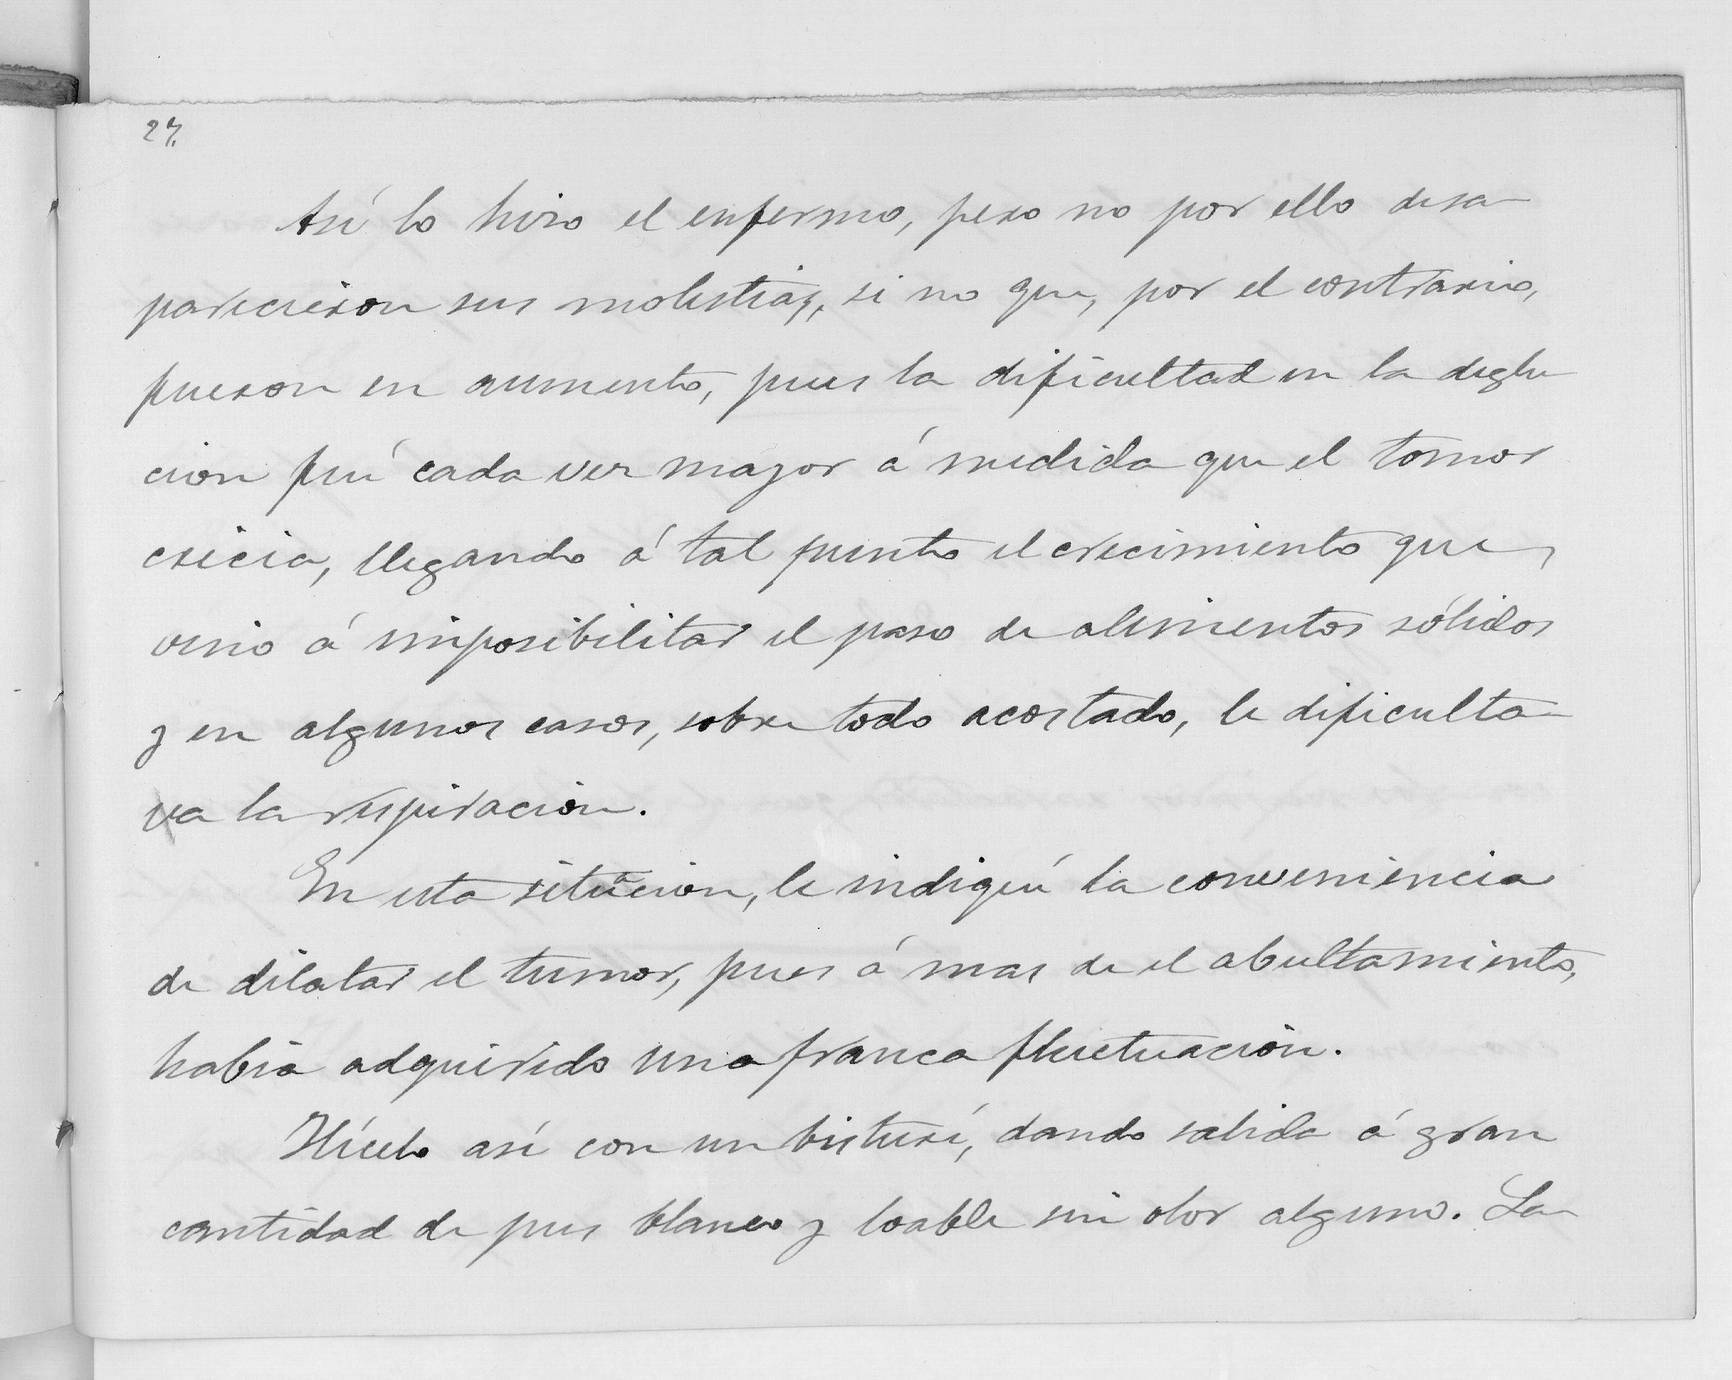 27.
Así lo hizo el enfermo, pero no por ello desa
parecieron sus molestias, si no que, por el contrario,
fueron en aumento, pues la dificultad en la deglu
cion fué cada vez mayor á medida que el tomor
crecia, llegando á tal punto el crecimiento que,
vino á imposibilitar el paso de alimentos sólidos
y en algunos casos, sobre todo acostado, le dificulta
va la respiracion.
En esta situacion, le indiqué la conveniencia
de dilatar el tumor, pues á mas de el abultamiento,
habia adquirido una franca fluctuacion.
Hícelo así con un bisturí, dando salida á gran
cantidad de pus blanco y loable sin olor alguno. La